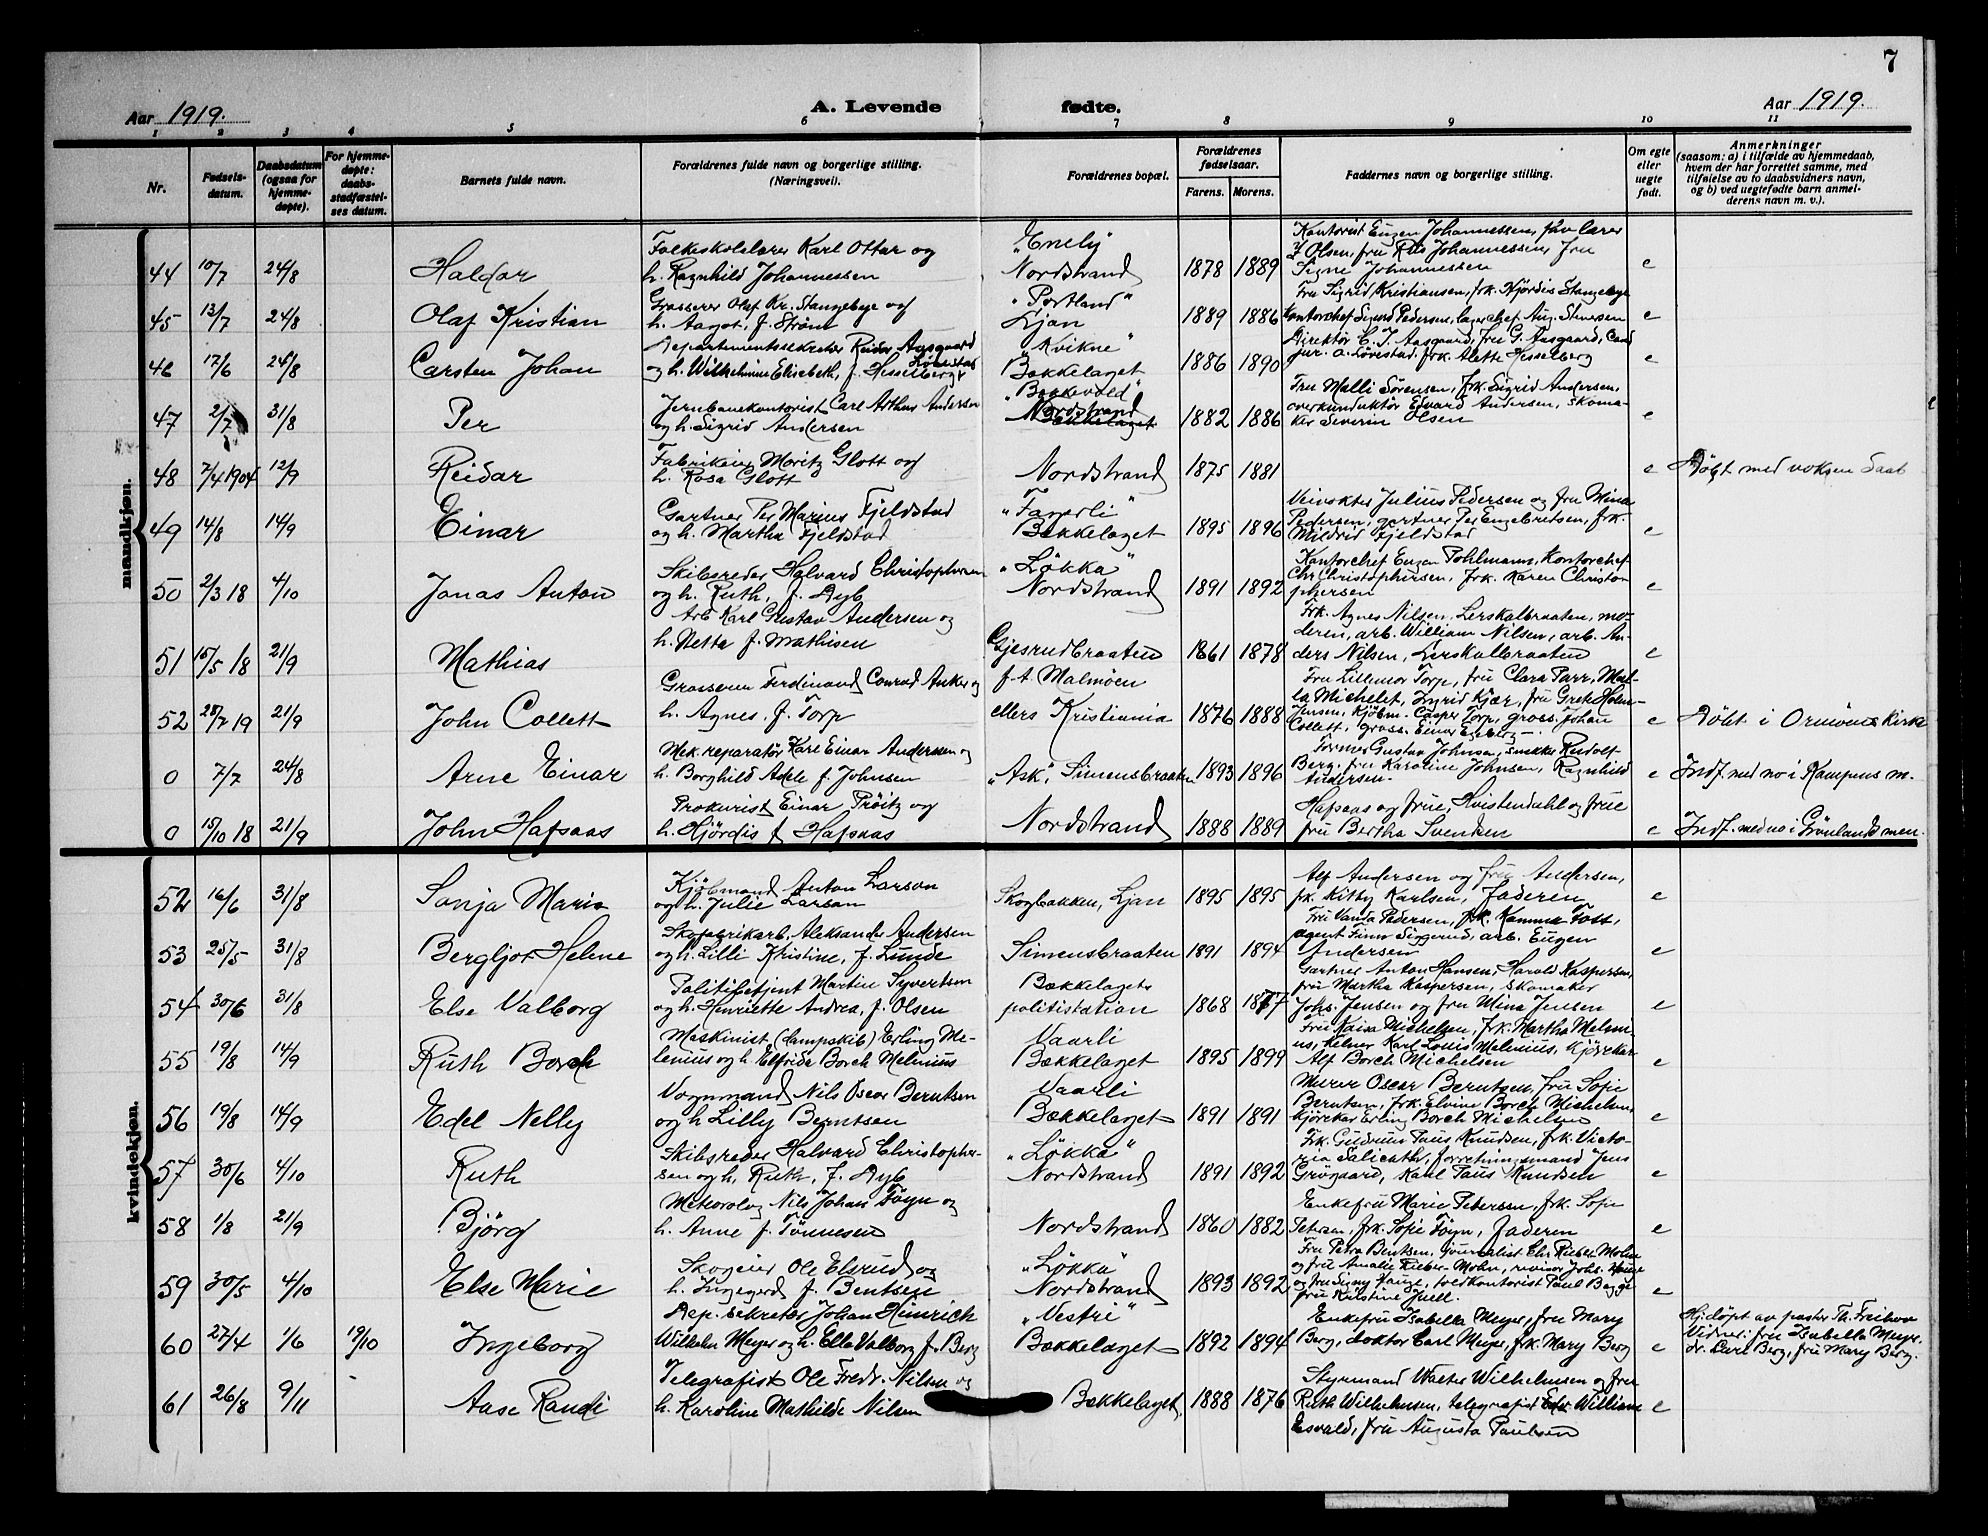 7
Aar 1919. A. Levende fødte. Aar 1919.
1 2 3 4 5 6 7 8 9 10 11
Nr. Fødsels-datum. Daabsdatum (ogsaa for hjemme-døpte). For hjemme-døpte: daabs-stadfæstel-ses datum. Barnets fulde navn. Forældrenes fulde navn og borgerlige stilling. (Næringsvei). Forældrenes bopæl. Forældrenes fødselsaar. Farens. Morens. Faddernes navn og borgerlige stilling. Om egte eller uegte født. Anmerkninger (saasom: a) i tilfælde av hjemmedaab, hvem der har forrettet samme, med tilføielse av to daabsvidners navn, og b) ved uegtefødte barn anmel-derens navn m. v.).
mandkjøn.
44 10/7 24/8 Haldor Folkeskolelærer Karl Ottar og h. Ragnhild Johannessen "Enely" Nordstrand 1878 1889 Kontorist Eugen Johannessen, lærer Olsen, fru Johannessen, fru Signe Johannessen e
45 13/7 24/8 Olaf Kristian Grosserer Olaf Kr. Stangebye og h. Aagot, f. Strøm "Portland" Ljan 1889 1886 Fru Sigrid Kristiansen, frk. Hjördis Stangebye Kontorchef Sigurd Pedersen, lagerchef Aug. Stenersen e
46 17/6 24/8 Carsten Johan Departementssekretær Reidar Aasgaard Lörestad og h. Wilhelmine Elisabeth, f. Hesselberg "Kvikne" Bækkelaget 1886 1890 Direktör C. J. Aasgaard, fru G. Aasgaard, Cand jur. O. Lörestad, frk. Alette Hesselberg e
47 2/7 31/8 Per Jernbanekontorist Carl Arthur Andersen og h. Sigrid Andersen "Bækkevold" Nordstrand Bækkelaget 1882 1886 Fru Malli Sörensen, frk. Sigrid Andersen, overkonduktör Edvard Andersen, skomaker Severin Olsen e
48 7/4 1904 12/9 Reidar Fabrikeier Moritz Glott og h. Rosa Glott Nordstrand 1875 1881 e Döbt med voksen daab
49 14/8 14/9 Einar Gartner Per Marius Fjeldstad og h. Martha Fjeldstad "Fagerli" Bækkelaget 1895 1896 Veivokter Julius Pedersen og fru Mina Pedersen, gartner Per Engebretsen, frk. Mildrid Fjeldstad e
50 2/3 18 4/10 Jonas Anton Skibsreder Halvard Christophersen og h. Ruth, f. Dyb "Lökka" Nordstrand 1891 1892 Kontorchef Eugen Pohlmann, Kontorchef Chr Christophersen, frk. Karen Christophersen e
51 15/5 18 21/9 Mathias Arb Karl Gustav Andersen og h. Netta f. Mathisen Gjesrudbraaten 1861 1878 Frk. Agnes Nilsen, Lerskalbraaten, moderen, arb. William Nilsen, arb. Anders Nilsen, Lerskalbraaten e
52 28/7 19 21/9 John Collett Grosserer Ferdinand Conrad Anker og h. Agnes, f. Torp f. t. Malmöen ellers Kristiania 1876 1888 Fru Lillemor Torp, fru Clara Parr, Michelet, Ingrid Kjær, fru Grete Jensen, Kjöbm. Casper Torp, gross. Johan Collett, gross. Einar Egeberg e Döbt i Ormöens Kirke
0 7/7 24/8 Arne Einar Mek. reparatör Karl Einar Andersen og h. Borghild Adele f. Johnsen "Ask", Simensbraaten 1893 1896 Former Gustav Johnsen, snekker Rudolf Berg, fru Karoline Johnsen, Ragnhild Andersen e Indf. med no i Kampens m.
0 15/10 18 21/9 John Hafsaas Prokurist Einar Pröitz og h. Hjördis f Hafsaas Nordstrand 1888 1889 Hafsaas og frue, Hvistendahl og frue fru Bertha Svendsen e Indf. med no i Grönlands men.
kvindekjøn.
52 16/6 31/8 Sonja Marie Kjöbmand Anton Larson og h. Julie Larson Skogbakken, Ljan 1895 1895 Alf Andersen og fru Andersen, frk. Kitty Karlsen, Faderen e
53 25/5 31/8 Bergljot Helene Skofabrikarb. Aleksander Andersen og h. Lilli Kristine, f. Lunde Simensbraaten 1891 1894 Fru Vanda Pedersen, frk. Kamma Foss, agent Finn Siggerud, arb. Eugen Andersen e
54 30/6 31/8 Else Valborg Politibetjent Martin Syvertsen og h. Henriette Andrea, f. Olsen Bækkelagets politistation 1868 1877 Gartner Anton Hansen, Harald Kaspersen, fru Martha Kaspersen, skomaker Johs. Jensen og fru Mina Jensen e
55 19/8 14/9 Ruth Borch Maskinist (dampskib) Erling Melenius og h. Elfrida Borch Melenius Vaarli Bækkelaget 1895 1899 Fru Kaisa Michelsen, frk. Martha Melenius, kelner Karl Louis Melenius, kjörekar Alf Borch Michelsen e
56 19/8 14/9 Edel Nelly Vognmand Nils Oscar Berntsen og h Lilly Berntsen Vaarli Bækkelaget 1891 1891 Murer Oscar Berntsen, fru Sofie Berntsen, frk. Elvine Borch Michelsen, kjörekar Erling Borch Michelsen e
57 30/6 4/10 Ruth Skibsreder Halvard Christophersen og h. Ruth, f. Dyb "Lökka" Nordstrand 1891 1892 Frk. Gudrun Paus Knudsen, frk. Victoria Salicath, forretningsmand Jens Grövgaard, Karl Paus Knudsen e
58 1/8 21/9 Björg Meteorolog Nils Johan Föyn og h. Anne f. Tönnesen Nordstrand 1860 1882 Enkefru Marie Petersen, frk. Sofie Petersen, frk. Sofie Föyn, Faderen e
59 30/5 4/10 Else Marie Skogeier Ole Elsrud og h. Ingegerd f. Bentsen "Lökka" Nordstrand 1893 1892 Fru Petra Bentsen, journalist Chr. Rieber-Mohn og fru Amalie Rieber-Mohn, revisor Johs. Hauge og fru Signy Hauge, toldkontorist Paul Bagge fru Kristine Juell. e
60 27/4 1/6 19/10 Ingeborg Dep. sekretær Johan Heinrich Wilhelm Meyer og h. Ella Valborg f. Berg "Vestri" Bækkelaget 1892 1894 Enkefru Isabella Meyer, fru Mary Berg, doktor Carl Meyer, frk. Mary Berg e Hj. döpt av pastor Th. Freihow Vidner: fru Isabella Meyer, dr. Carl Berg, fru Mary Berg.
61 26/8 9/11 Aase Randi Telegrafist Ole Fredr. Nilsen og h. Karoline Mathilde Nilsen Bækkelaget, 1888 1876 Styrmand Walter Wilhelmsen og fru Ruth Wilhelmsen, telegrafist William Esvald, fru Augusta Paulsen e